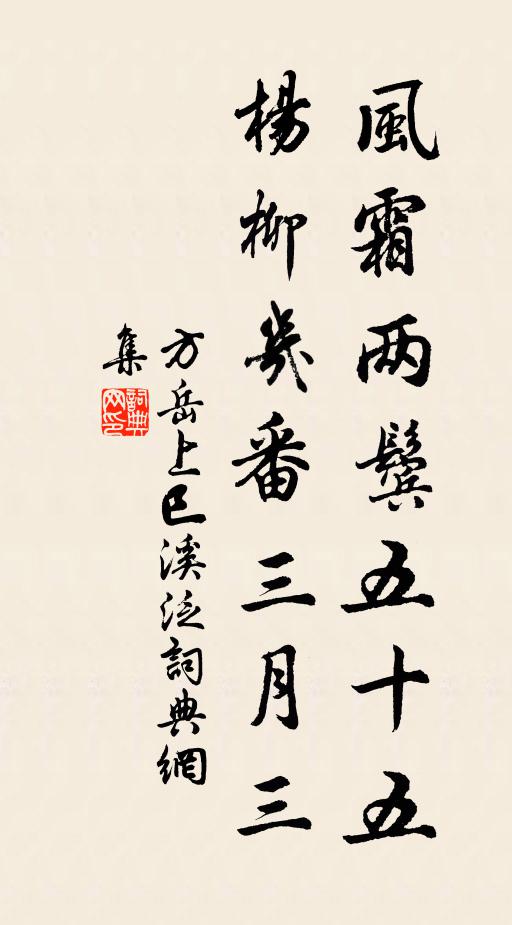 風霜两鬓五十五
楊柳幾番三月三
方岳上巳溪泛詞典網
集
詞典
网印